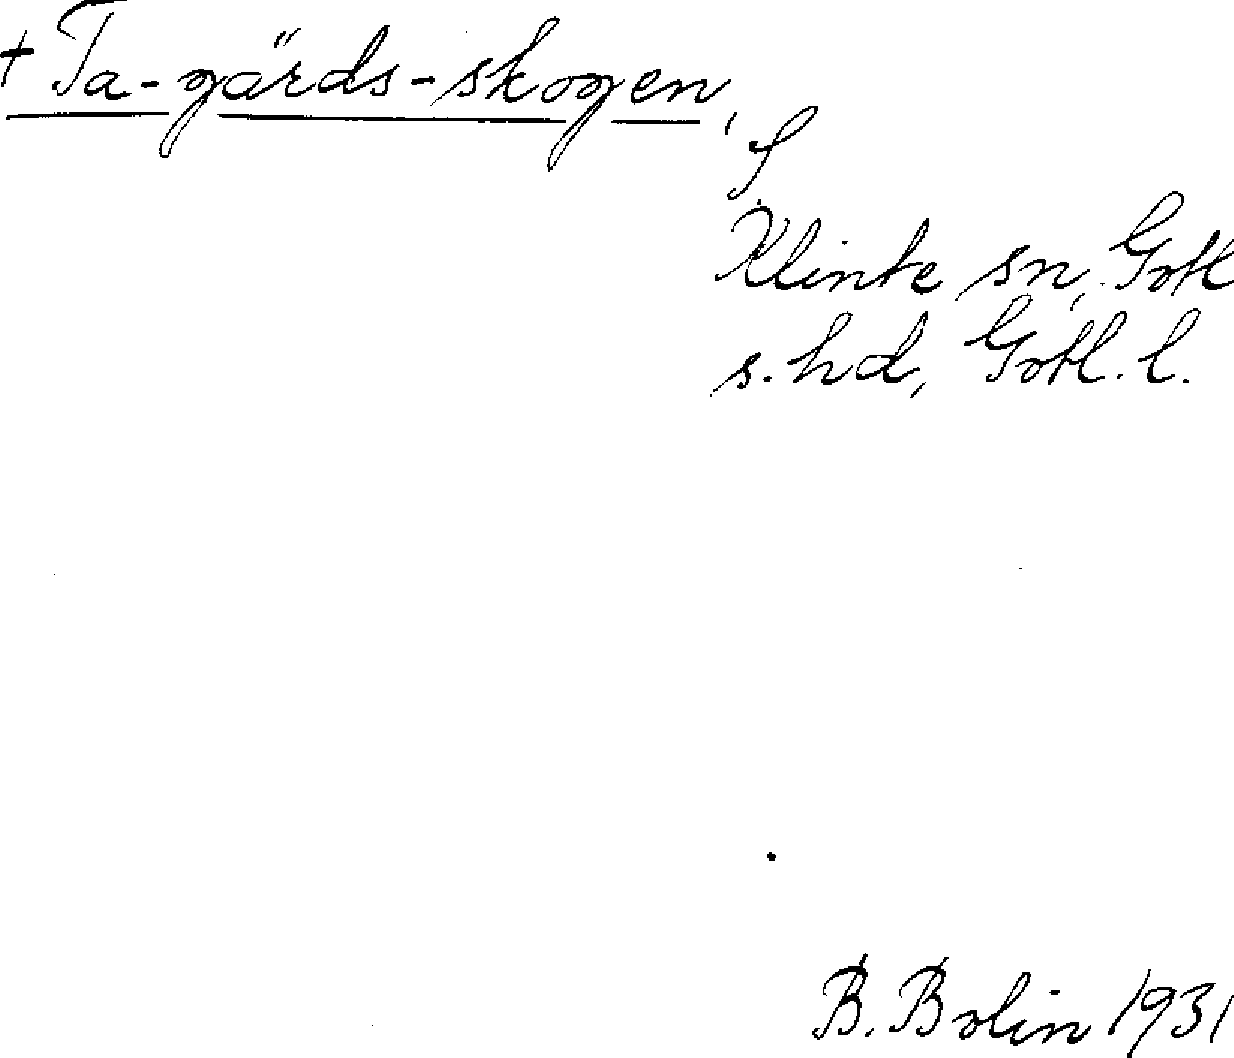 + Ta-gärds-skogen,
S
Klinte sn, Gotl
s. hd, Gotl. l.
B. Bolin 1931